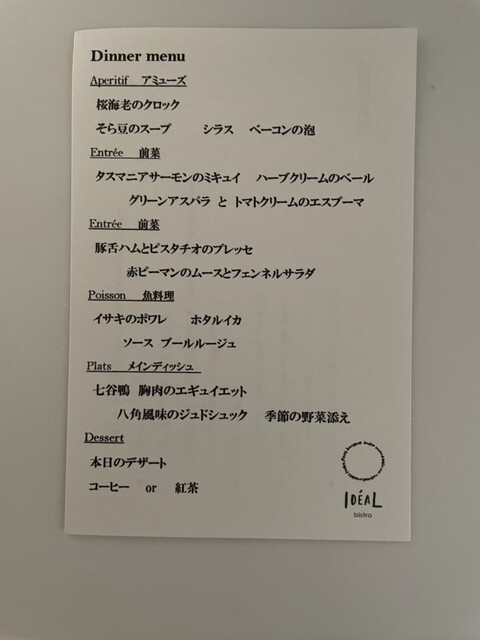 Dinner menu
Aperitif アミューズ
桜海老のクロック
そら豆のスープ シラス ベーコンの泡
Entrée 前菜
タスマニアサーモンのミキュイ ハーブクリームのベール
グリーンアスパラ と トマトクリームのエスプーマ
Entrée 前菜
豚舌ハムとピスタチオのプレッセ
赤ピーマンのムースとフェンネルサラダ
Poisson 魚料理
イサキのポワレ ホタルイカ
ソース ブールルージュ
Plats メインディッシュ
七谷鴨 胸肉のエギュイエット
八角風味のジュドシュック 季節の野菜添え
Dessert
本日のデザート
コーヒー or 紅茶
IDÉAL
bistro